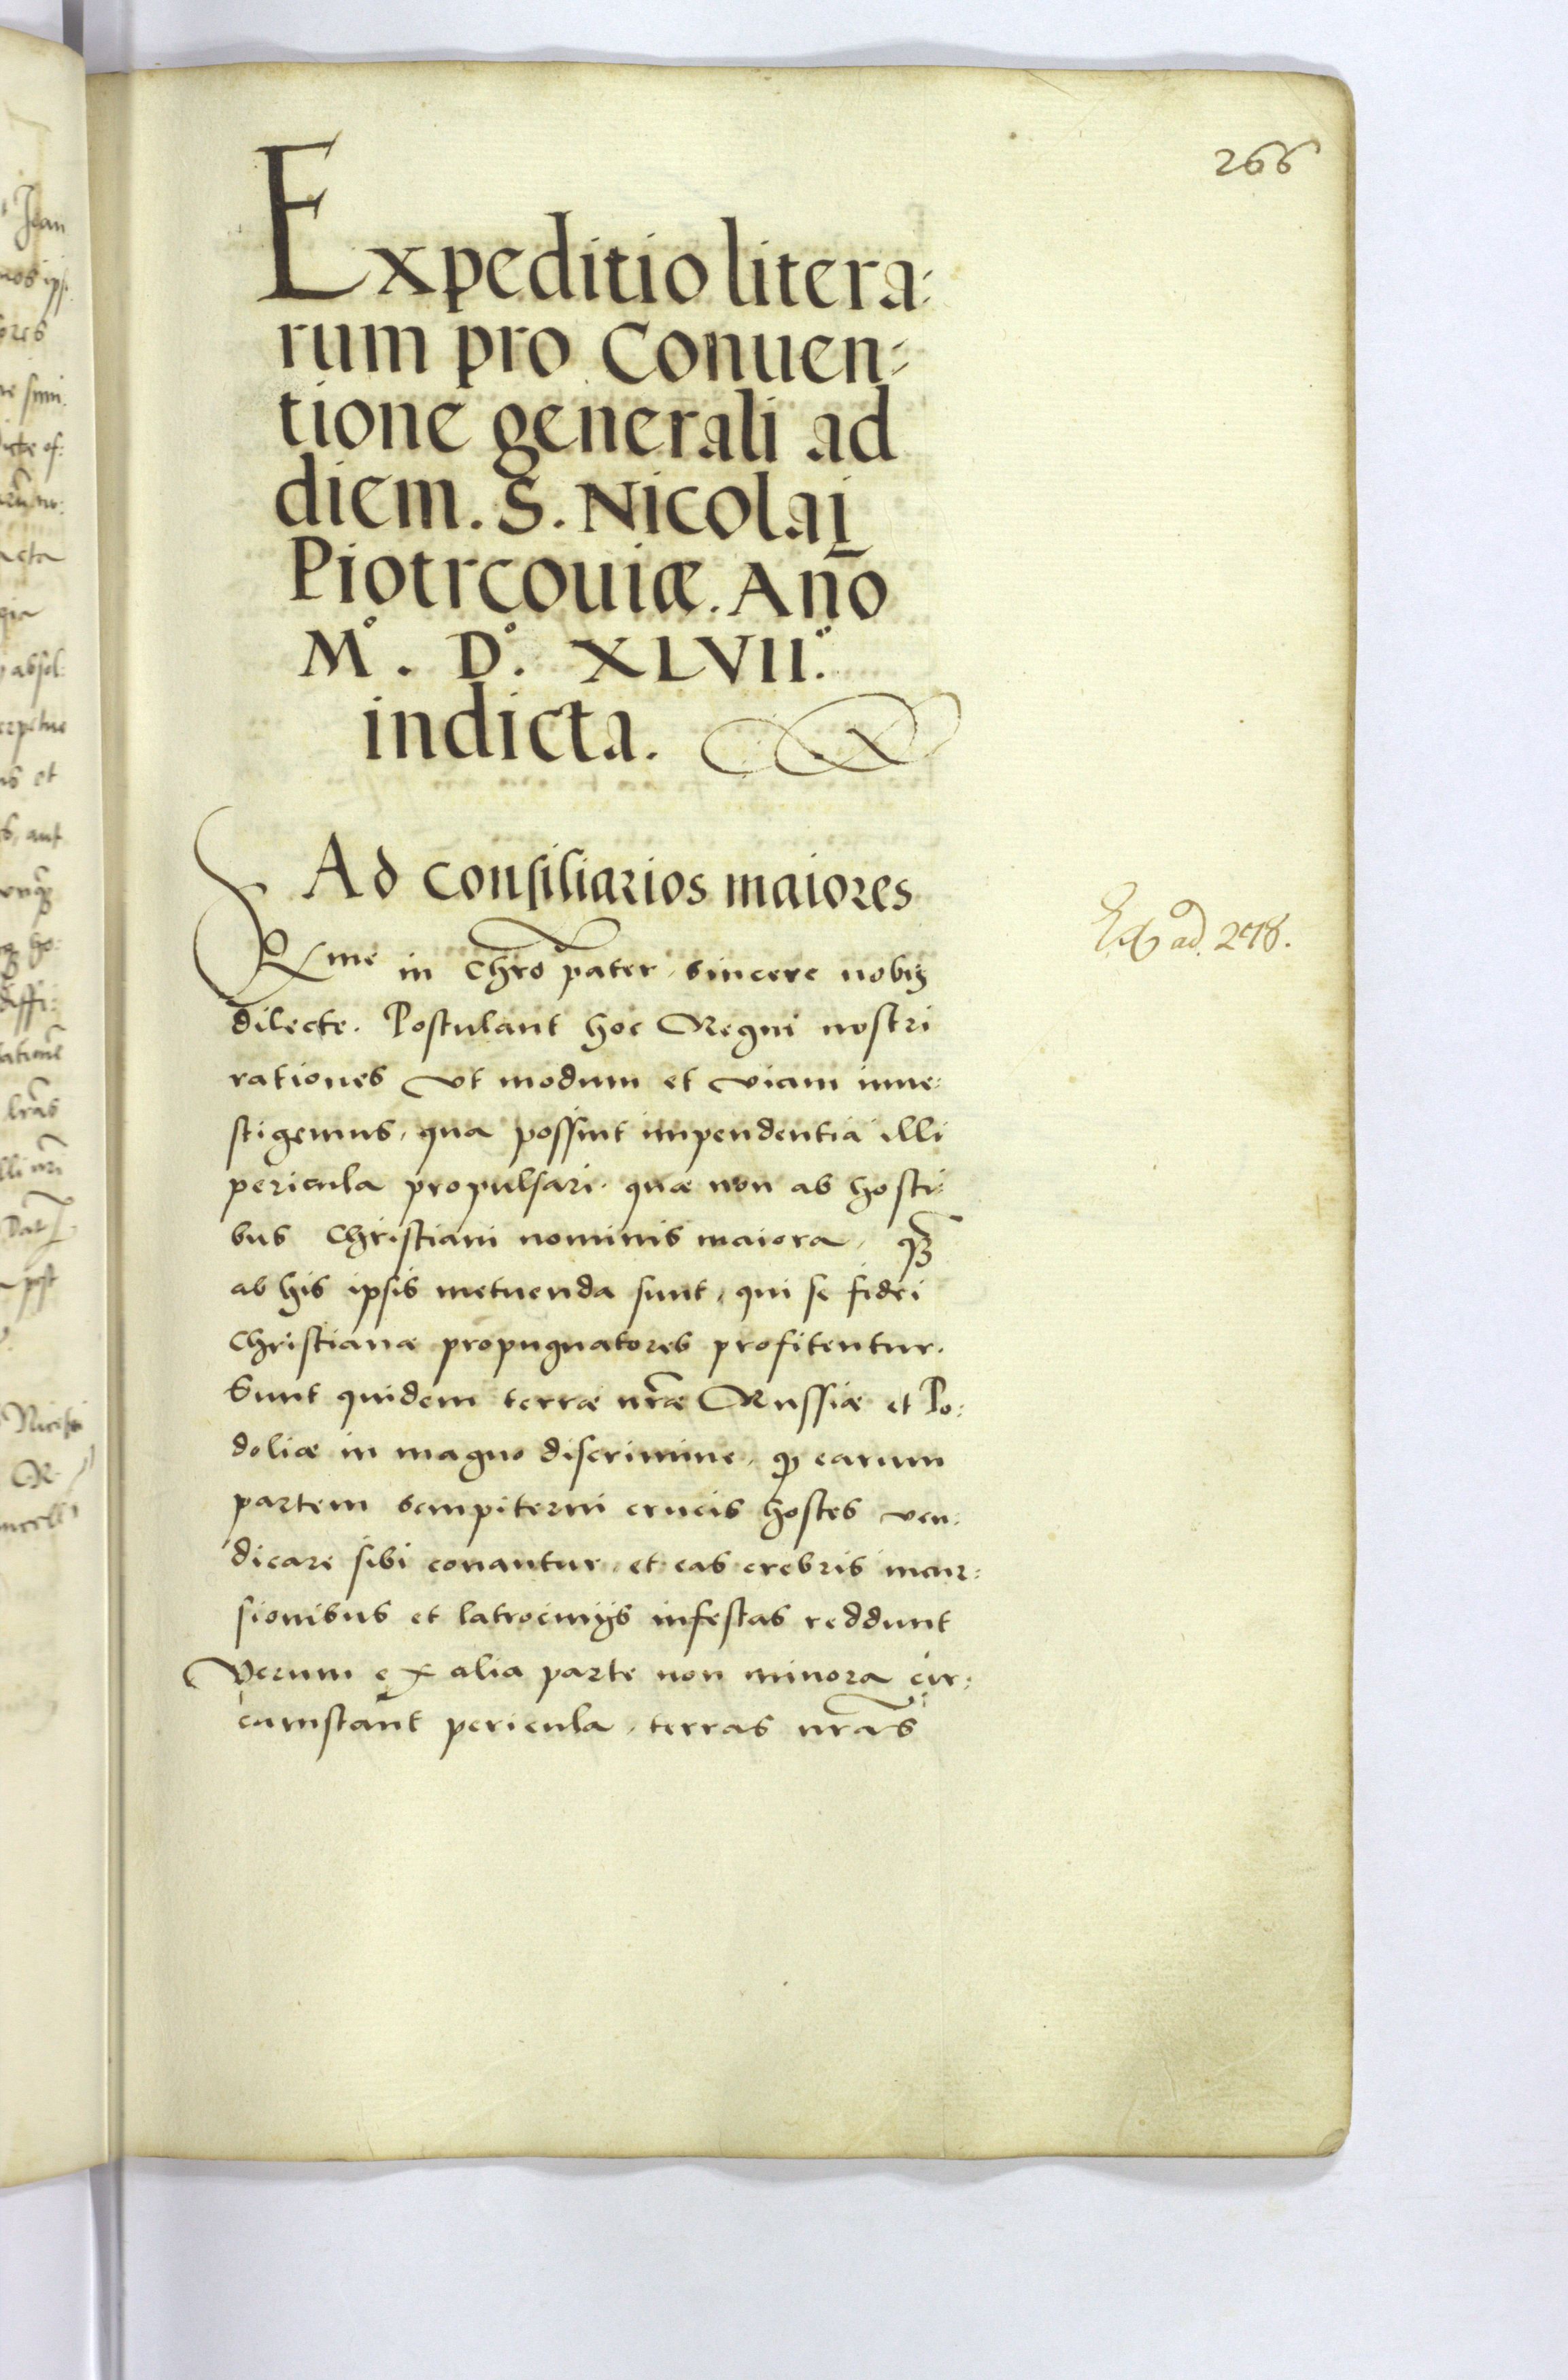 266
Expeditio litera:
rum pro Conuen:
tione generali ad
diem. S. Nicolai
Piotrcouiæ. Año
M°. D°. XLVII°.
indicta.
Ad consiliarios maiores
Rme in Chro pater, sincere nobis
dilecte. Postulant hoc Regni nostri
rationes vt modum et viam inue:
stigemus, qua possint impendentia illi
pericula propulsari. quæ non ab hosti:
bus Christiani nominis maiora, qz
ab his ipsis metuenda sunt, qui se fidei
Christianæ propugnatores profitentur.
Sunt quidem terræ nræ Russiæ et Po:
doliæ in magno discrimine, qd earum
partem sempiterni crucis hostes ven:
dicare sibi conantur, et eas crebris incur:
sionibus et latrocinijs infestas reddunt
Verum ex alia parte non minora cir:
cumstant pericula, terras nras
ad. 278.